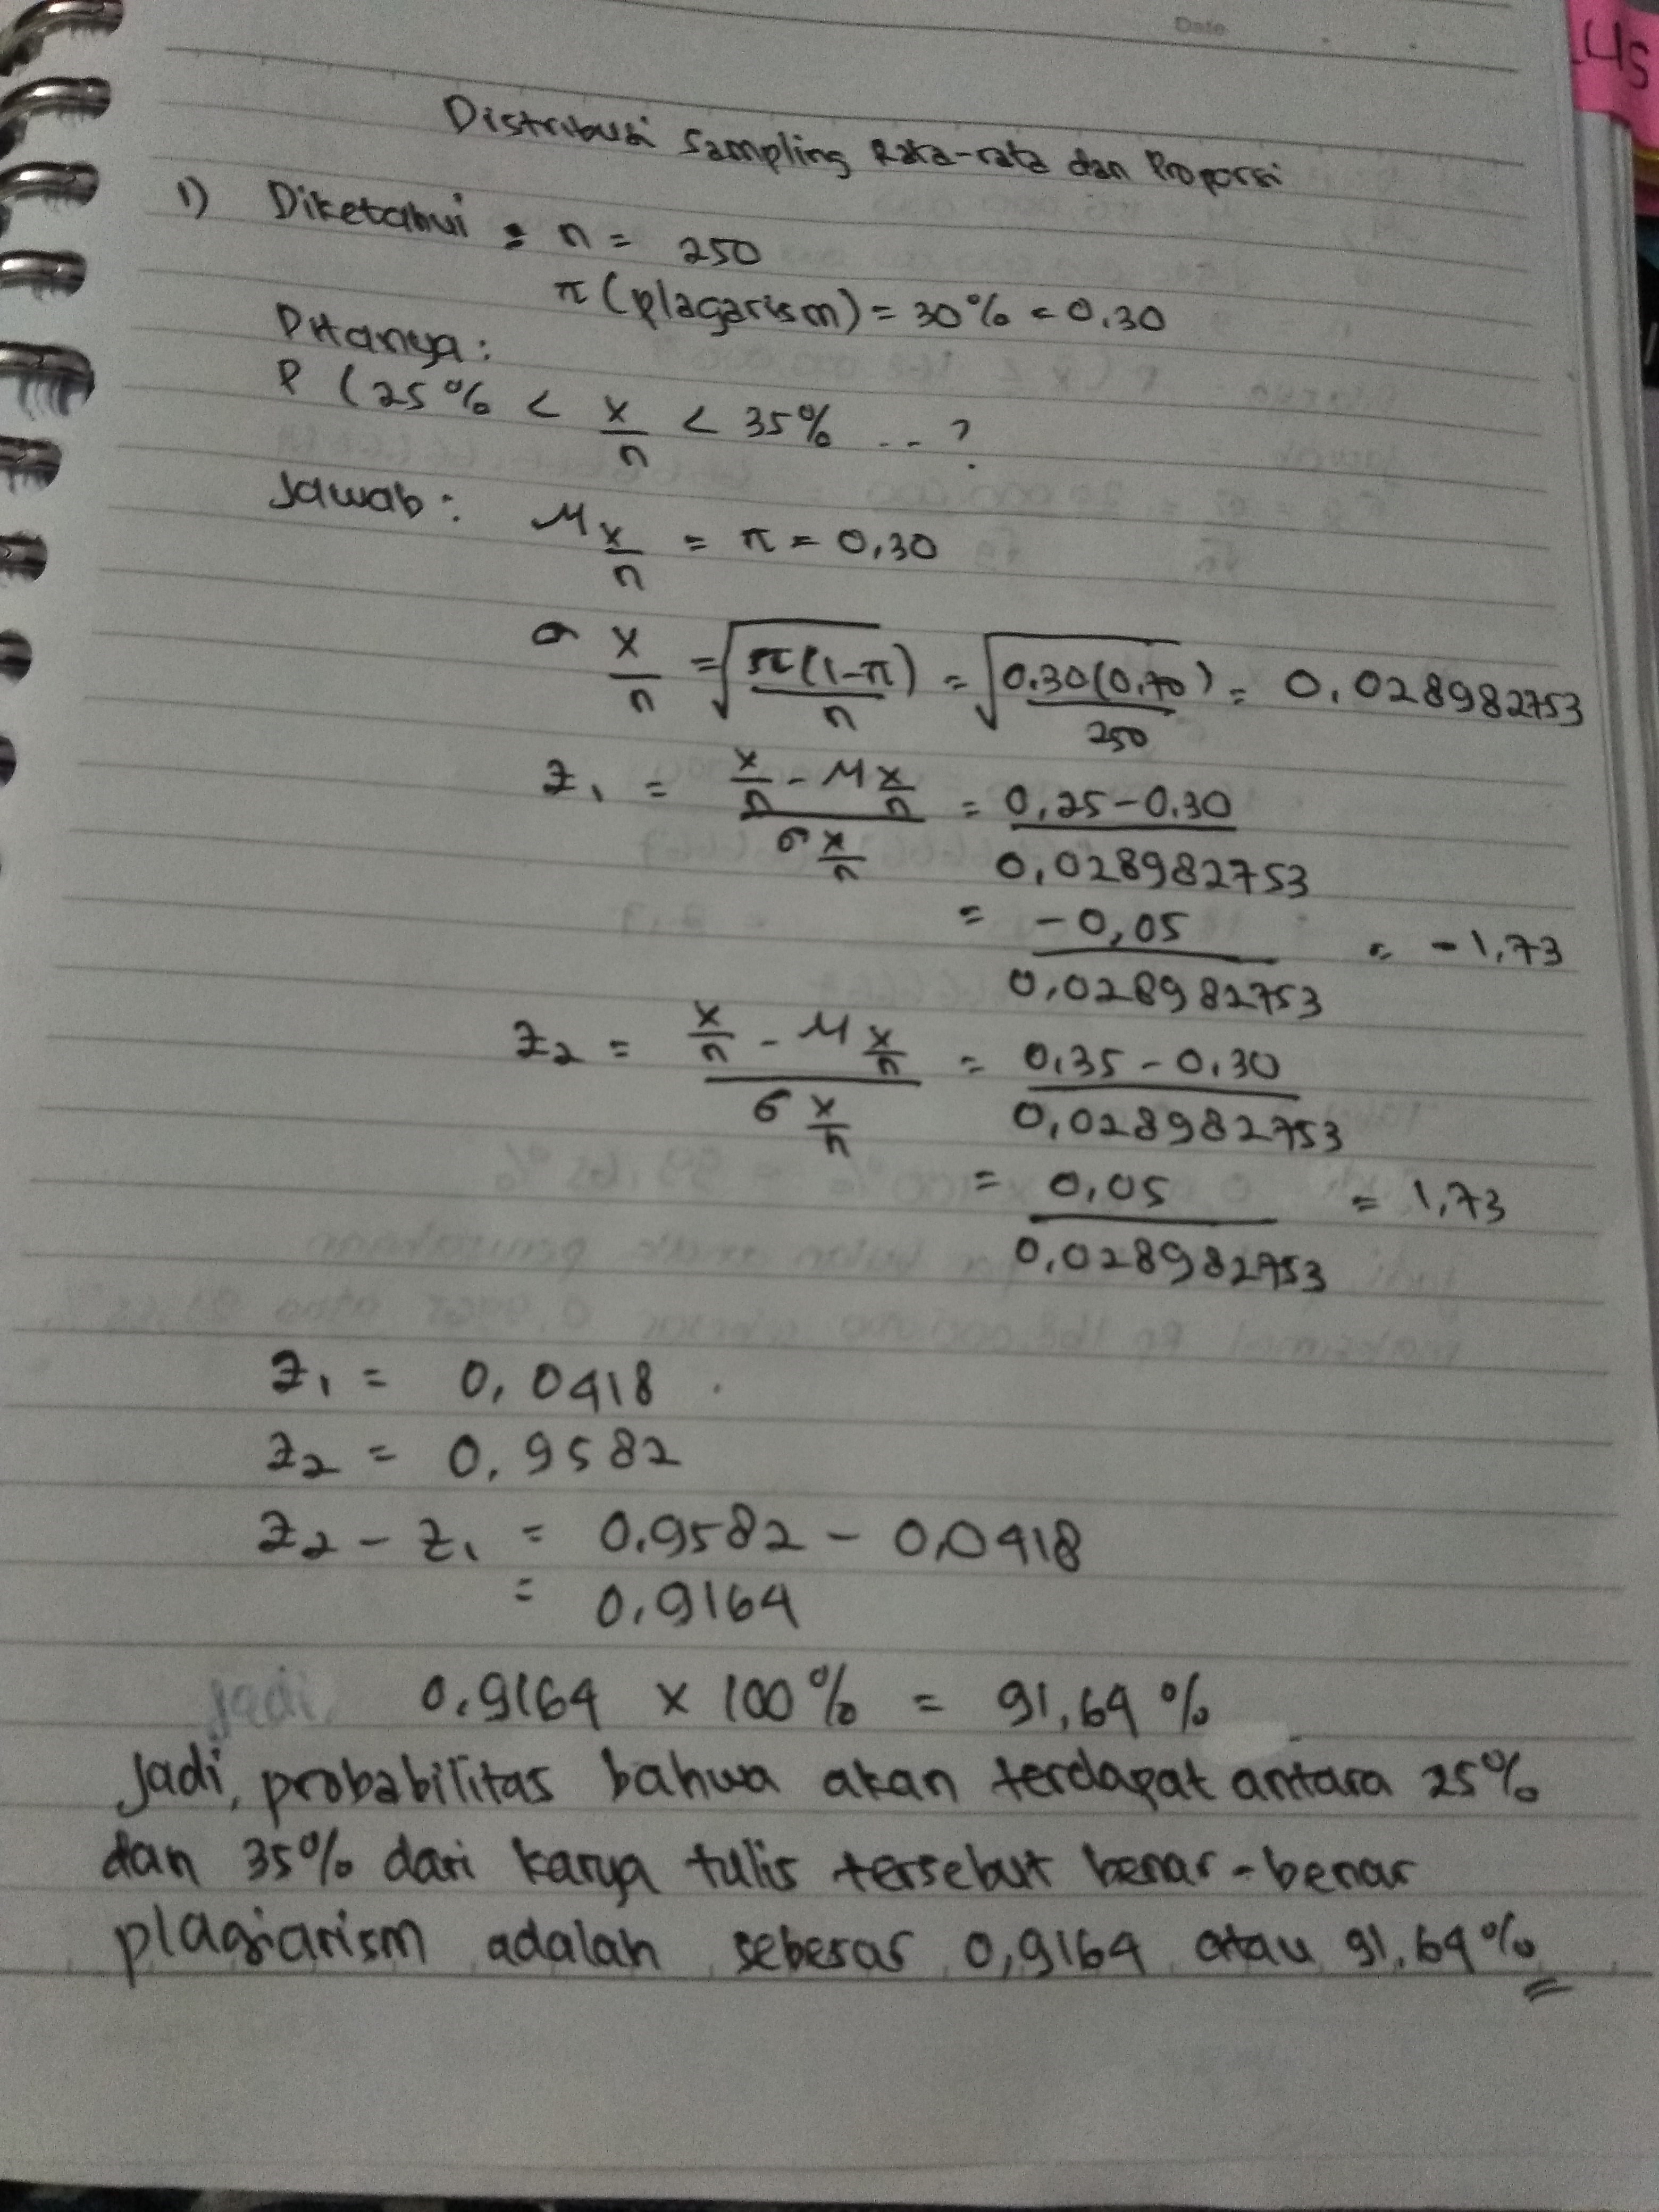 Date
45
Distribusi Sampling Rata-rata dan Proporsi
1) Diketahui : n = 250
π (plagarism) = 30% = 0,30
Ditanya:
P (25% < x/n < 35% ... ?
Jawab: μ x/n = π = 0,30
σ x/n = √(π(1-π)/n) = √(0.30(0,70)/250) = 0,028982753
z₁ = (x/n - μ x/n)/(σ x/n) = (0,25-0.30)/0,028982753
= -0,05/0,028982753 = -1,73
z₂ = (x/n - μ x/n)/(σ x/n) = (0,35-0,30)/0,028982753
= 0,05/0,028982753 = 1,73
z₁ = 0,0418
z₂ = 0,9582
z₂ - z₁ = 0,9582 - 0,0418
= 0,9164
Jadi, 0,9164 x 100% = 91,64%
Jadi, probabilitas bahwa akan terdapat antara 25%
dan 35% dari karya tulis tersebut benar-benar
plagiarism adalah sebesar 0,9164 atau 91,64%